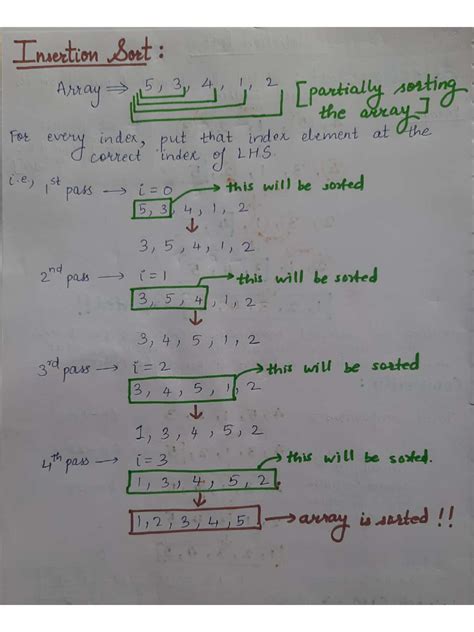 Insertion Sort :
Array ⇒ 5, 3, 4, 1, 2 [partially sorting
the array]
For every index, put that index element at the
correct index of LHS
i.e, 1st pass → i = 0 → this will be sorted
5, 3, 4, 1, 2
↓
3, 5, 4, 1, 2
2nd pass → i = 1 → this will be sorted
3, 5, 4, 1, 2
↓
3, 4, 5, 1, 2
3rd pass → i = 2 → this will be sorted
3, 4, 5, 1, 2
↓
1, 3, 4, 5, 2
4th pass → i = 3 → this will be sorted.
1, 3, 4, 5, 2.
↓
1, 2, 3, 4, 5 → array is sorted !!